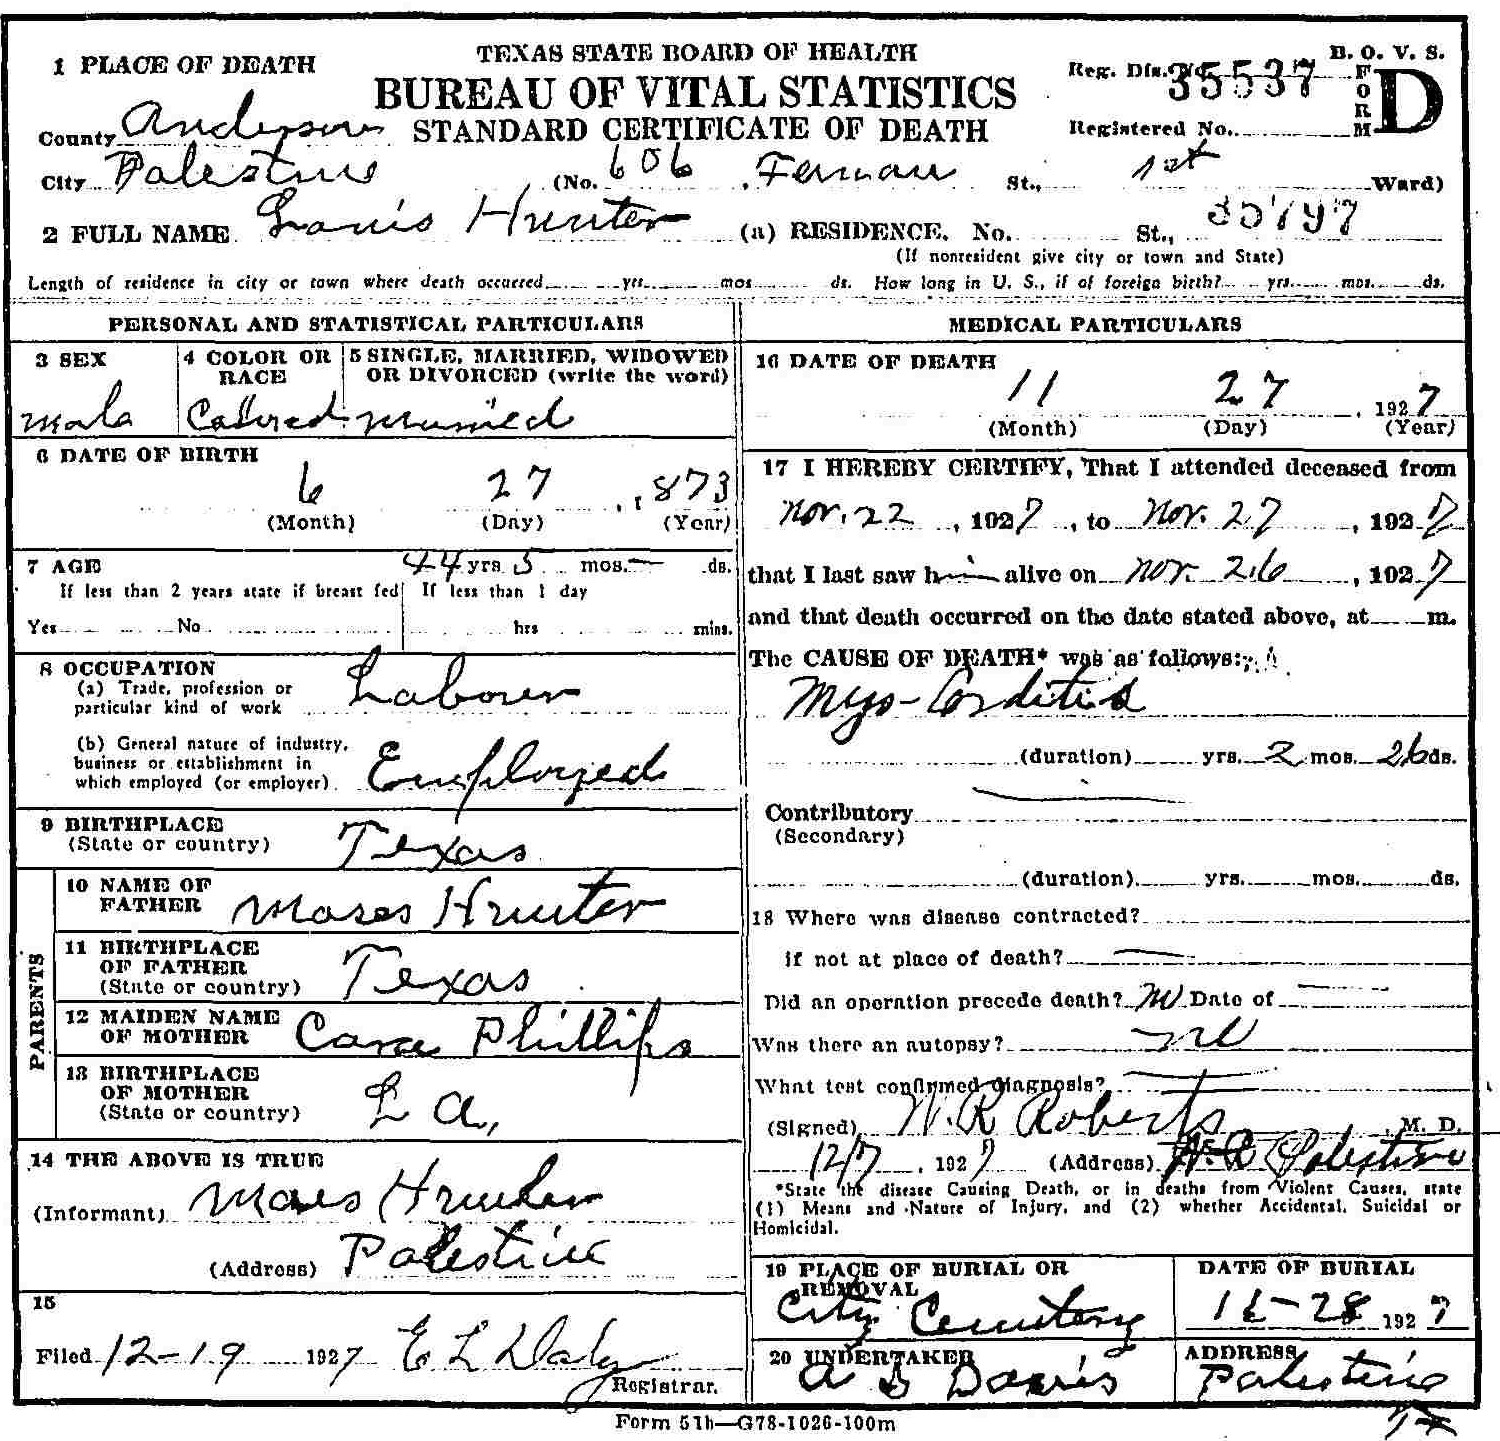 TEXAS STATE BOARD OF HEALTH
B. O. V. S.
1 PLACE OF DEATH
BUREAU OF VITAL STATISTICS
Reg. Dis. No. 35537
FORM D
County Anderson
STANDARD CERTIFICATE OF DEATH
Registered No.
City Palestine (No. 606, St., 1st Ward)
2 FULL NAME Louis Hunter (a) RESIDENCE. No. St., 35797
(If nonresident give city or town and State)
Length of residence in city or town where death occurred yrs. mos. ds. How long in U. S., if of foreign birth? yrs. mos. ds.
PERSONAL AND STATISTICAL PARTICULARS
3 SEX
Male
4 COLOR OR RACE
Colored
5 SINGLE, MARRIED, WIDOWED
OR DIVORCED (write the word)
Married
6 DATE OF BIRTH
6 27, 1873
(Month) (Day) (Year)
7 AGE 44 yrs 5 mos. — ds.
If less than 2 years state if breast fed If less than 1 day
Yes No hrs mins.
8 OCCUPATION
(a) Trade, profession or
particular kind of work Laborer
(b) General nature of industry,
business or establishment in
which employed (or employer) Employed
9 BIRTHPLACE
(State or country) Texas
PARENTS
10 NAME OF
FATHER Moses Hunter
11 BIRTHPLACE
OF FATHER
(State or country) Texas
12 MAIDEN NAME
OF MOTHER Phillips
13 BIRTHPLACE
OF MOTHER
(State or country) La,
14 THE ABOVE IS TRUE
(Informant) Moses Hunter
(Address) Palestine
15
Filed 12-19 1927 E L Daly
Registrar.
MEDICAL PARTICULARS
16 DATE OF DEATH
11 27, 1927
(Month) (Day) (Year)
17 I HEREBY CERTIFY, That I attended deceased from
Nov. 22, 1927, to Nov. 27, 1927
that I last saw him alive on Nov. 26, 1927
and that death occurred on the date stated above, at m.
The CAUSE OF DEATH* was as follows:
Myo-Carditis
(duration) yrs. 2 mos. 26 ds.
Contributory
(Secondary)
(duration) yrs. mos. ds.
18 Where was disease contracted?
if not at place of death? —
Did an operation precede death? no Date of —
Was there an autopsy? no
What test confirmed diagnosis? —
(Signed) W. R Roberts, M. D.
12/7, 1927 (Address) Palestine
*State the disease Causing Death, or in deaths from Violent Causes, state
(1) Means and Nature of Injury, and (2) whether Accidental, Suicidal or
Homicidal.
19 PLACE OF BURIAL OR
REMOVAL
City Cemetery
DATE OF BURIAL
11-28 1927
20 UNDERTAKER
Davis
ADDRESS
Palestine
Form 51b—G78-1026-100m